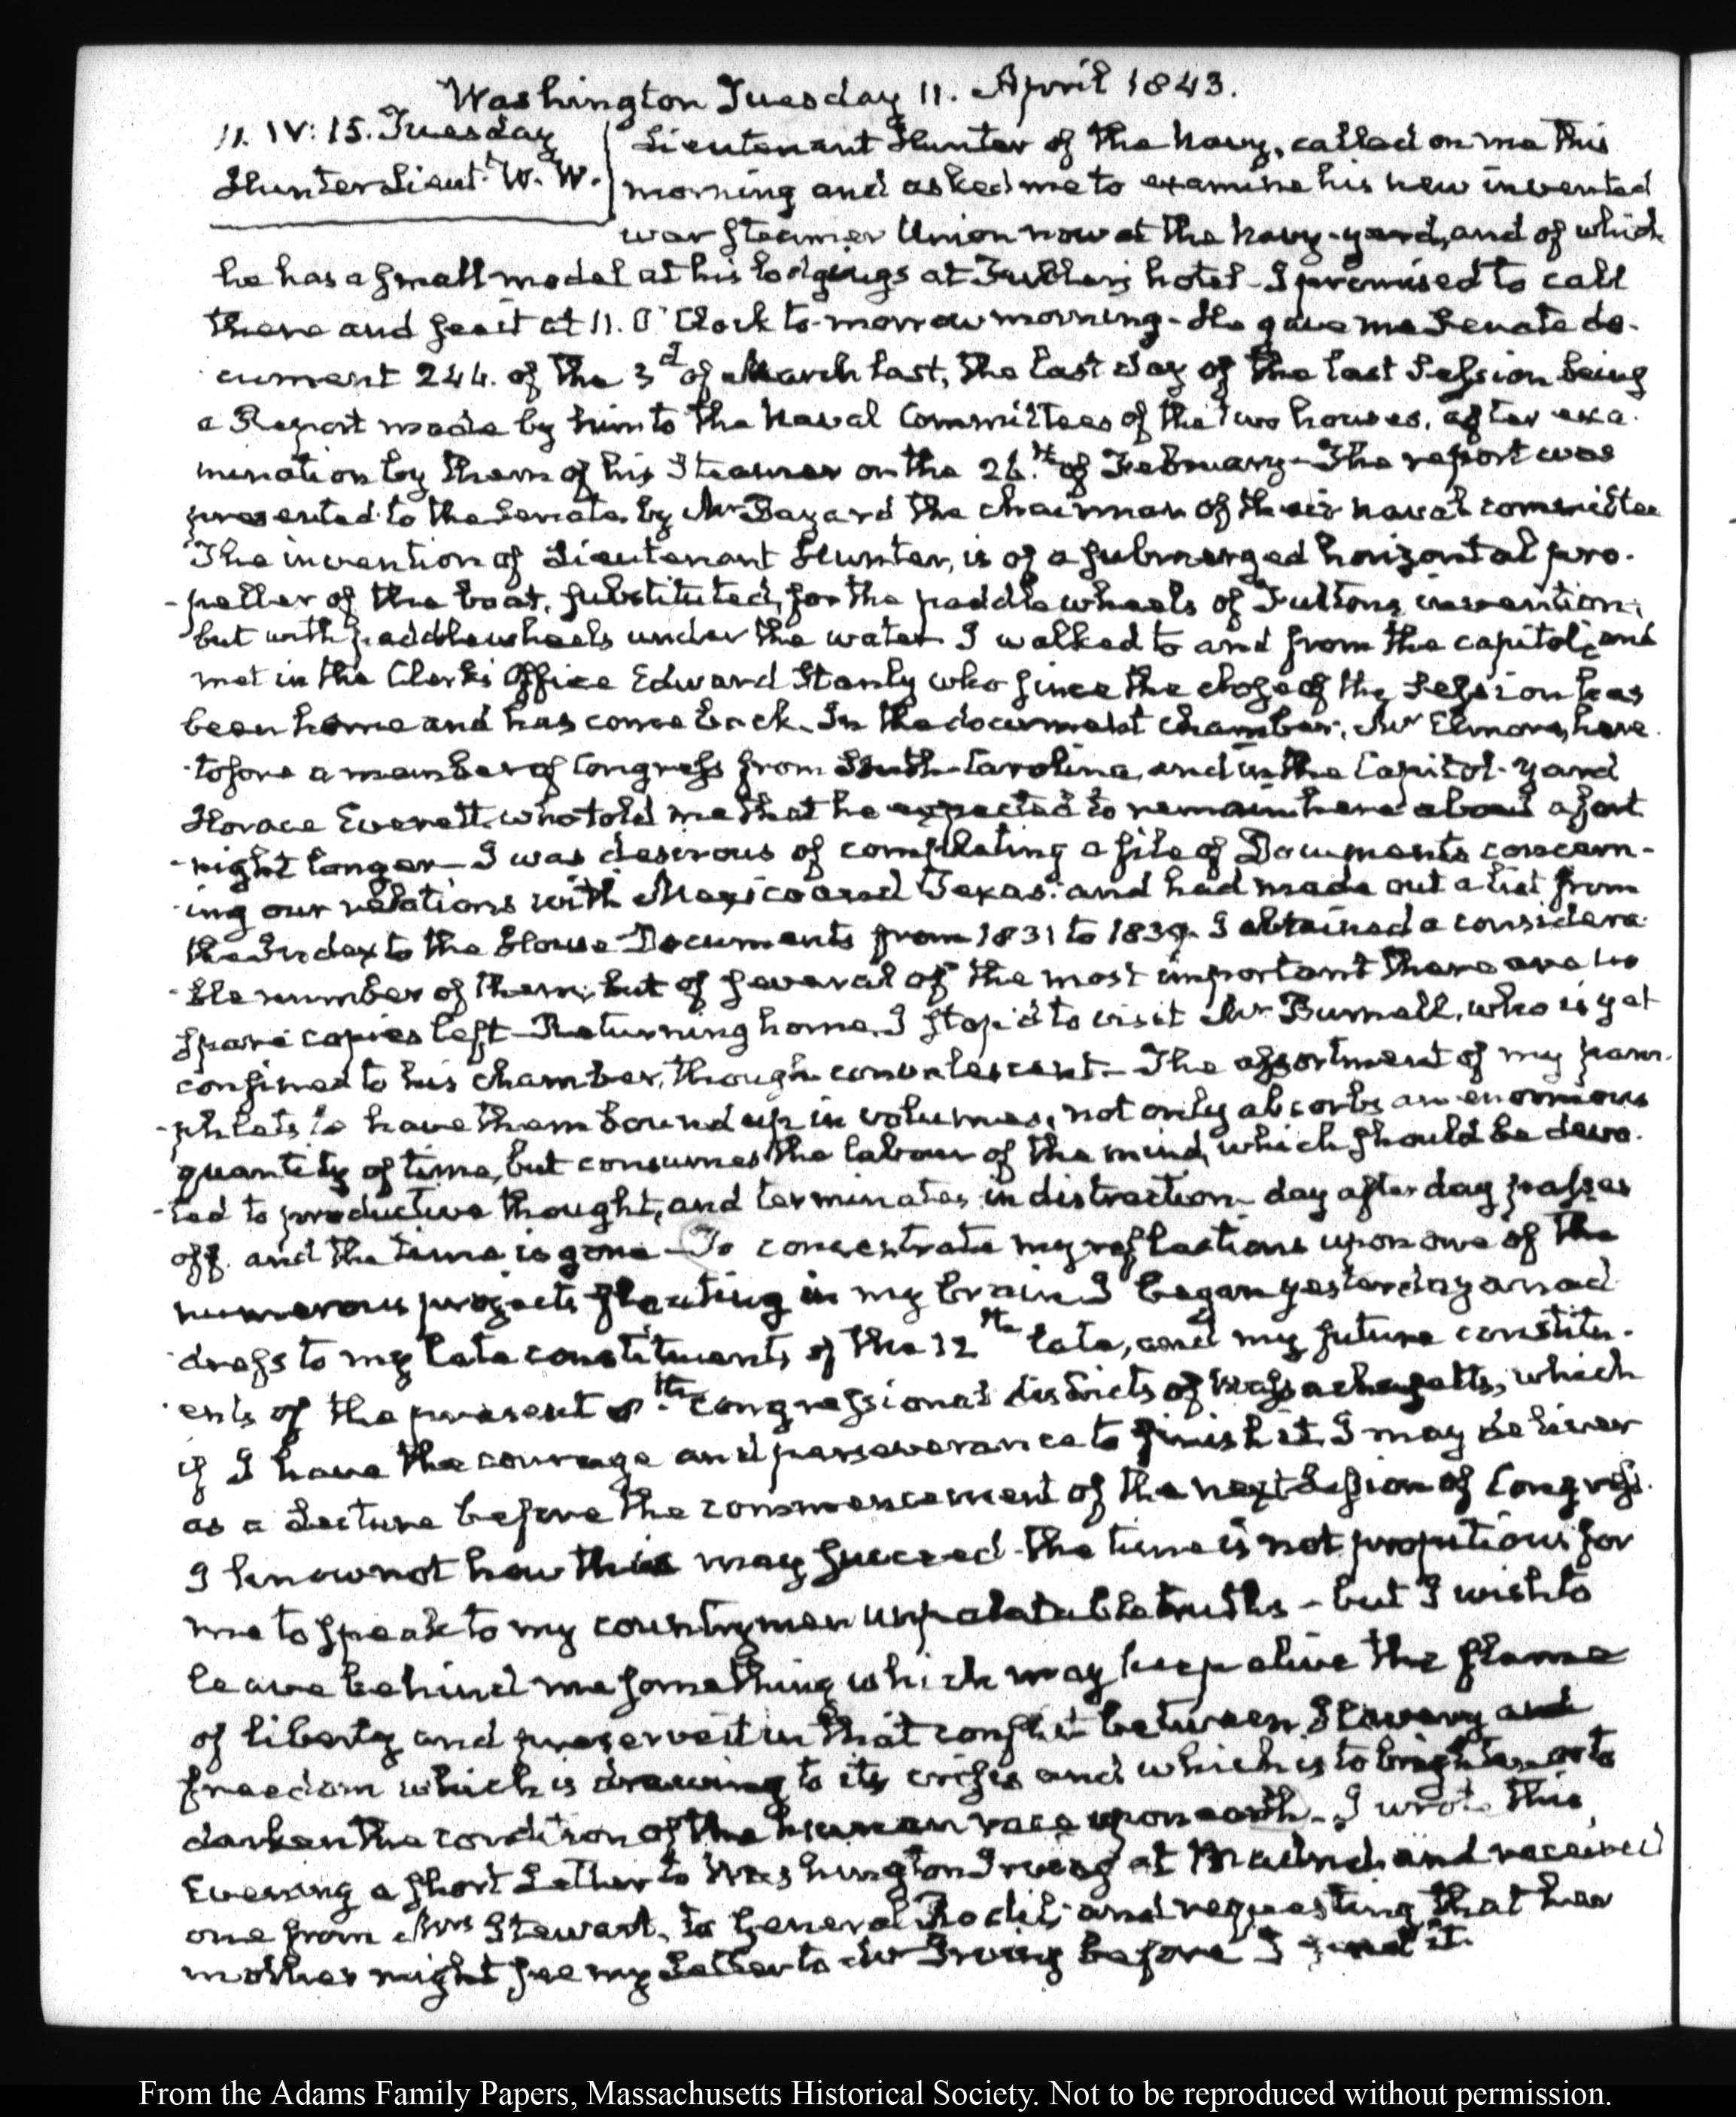 Washington Tuesday 11. April 1843.
11. IV: 15. Tuesday
Hunter Lieut.t W. W.
Lieutenant Hunter of the Navy, called on me this
morning and asked me to examine his new invented
war steamer Union now at the Navy-yard, and of which
he has a small model at his lodgings at Fuller's hotel - I promised to call
there and see it at 11. O'Clock to-morrow morning - He gave me Senate do-
cument 244. of the 3d of March last, the last day of the last Session being
a Report made by him to the Naval Committees of the two houses, after exa-
mination by them of his Steamer on the 26.th of February - The report was
presented to the Senate by Mr Bayard the chairman of their naval committee
The invention of Lieutenant Hunter, is of a submerged horizontal pro-
-peller of the boat, substituted, for the paddle wheels of Fulton's invention;
but with paddlewheels under the water I walked to and from the capitol; and
met in the Clerk's Office Edward Stanly who since the close of the Session has
been home and has come back. In the document chamber, Mr Elmore, here-
-tofore a member of Congress from South-Carolina, and in the Capitol-yard
Horace Everett who told me that he expected to remain here about a fort
-night longer - I was desirous of completing a file of Documents concern-
-ing our relations with Mexico and Texas: and had made out a list from
the Index to the House Documents from 1831 to 1839. I obtained a considera-
-ble number of them; but of several of the most important there are no
spare copies left - Returning home, I stop'd to visit Mr Burnell, who is yet
confined to his chamber, though convalescent - The assortment of my pam-
-phlets to have them bound up in volumes, not only absorbs an enormous
quantity of time, but consumes the labour of the mind, which should be devo-
-ted to productive thought, and terminates in distraction - day after day passes
off. and the time is gone - To concentrate my reflections upon one of the
numerous projects floating in my brain I began yesterday an ad-
-dress to my late constituents of the 12th late, and my future constitu-
-ents of the present 8.th Congressional districts of Massachusetts, which
if I have the courage and perseverance to finish it, I may deliver
as a Lecture before the commencement of the next Session of Congress.
I know not how this may succeed - the time is not propitious for
me to speak to my countrymen unpalatable truths - but I wish to
leave behind me something which may keep alive the flame
of liberty and preserve it in that conflict between Slavery and
freedom which is drawing to its crisis and which is to brighten or to
darken the condition of the human race upon earth - I wrote this
Evening a short Letter to Washington Irving at Madrid and received
one from Mrs Stewart, to General Rodil; and requesting that her
mother might see my Letter to Mr Irving before I send it.
From the Adams Family Papers, Massachusetts Historical Society. Not to be reproduced without permission.